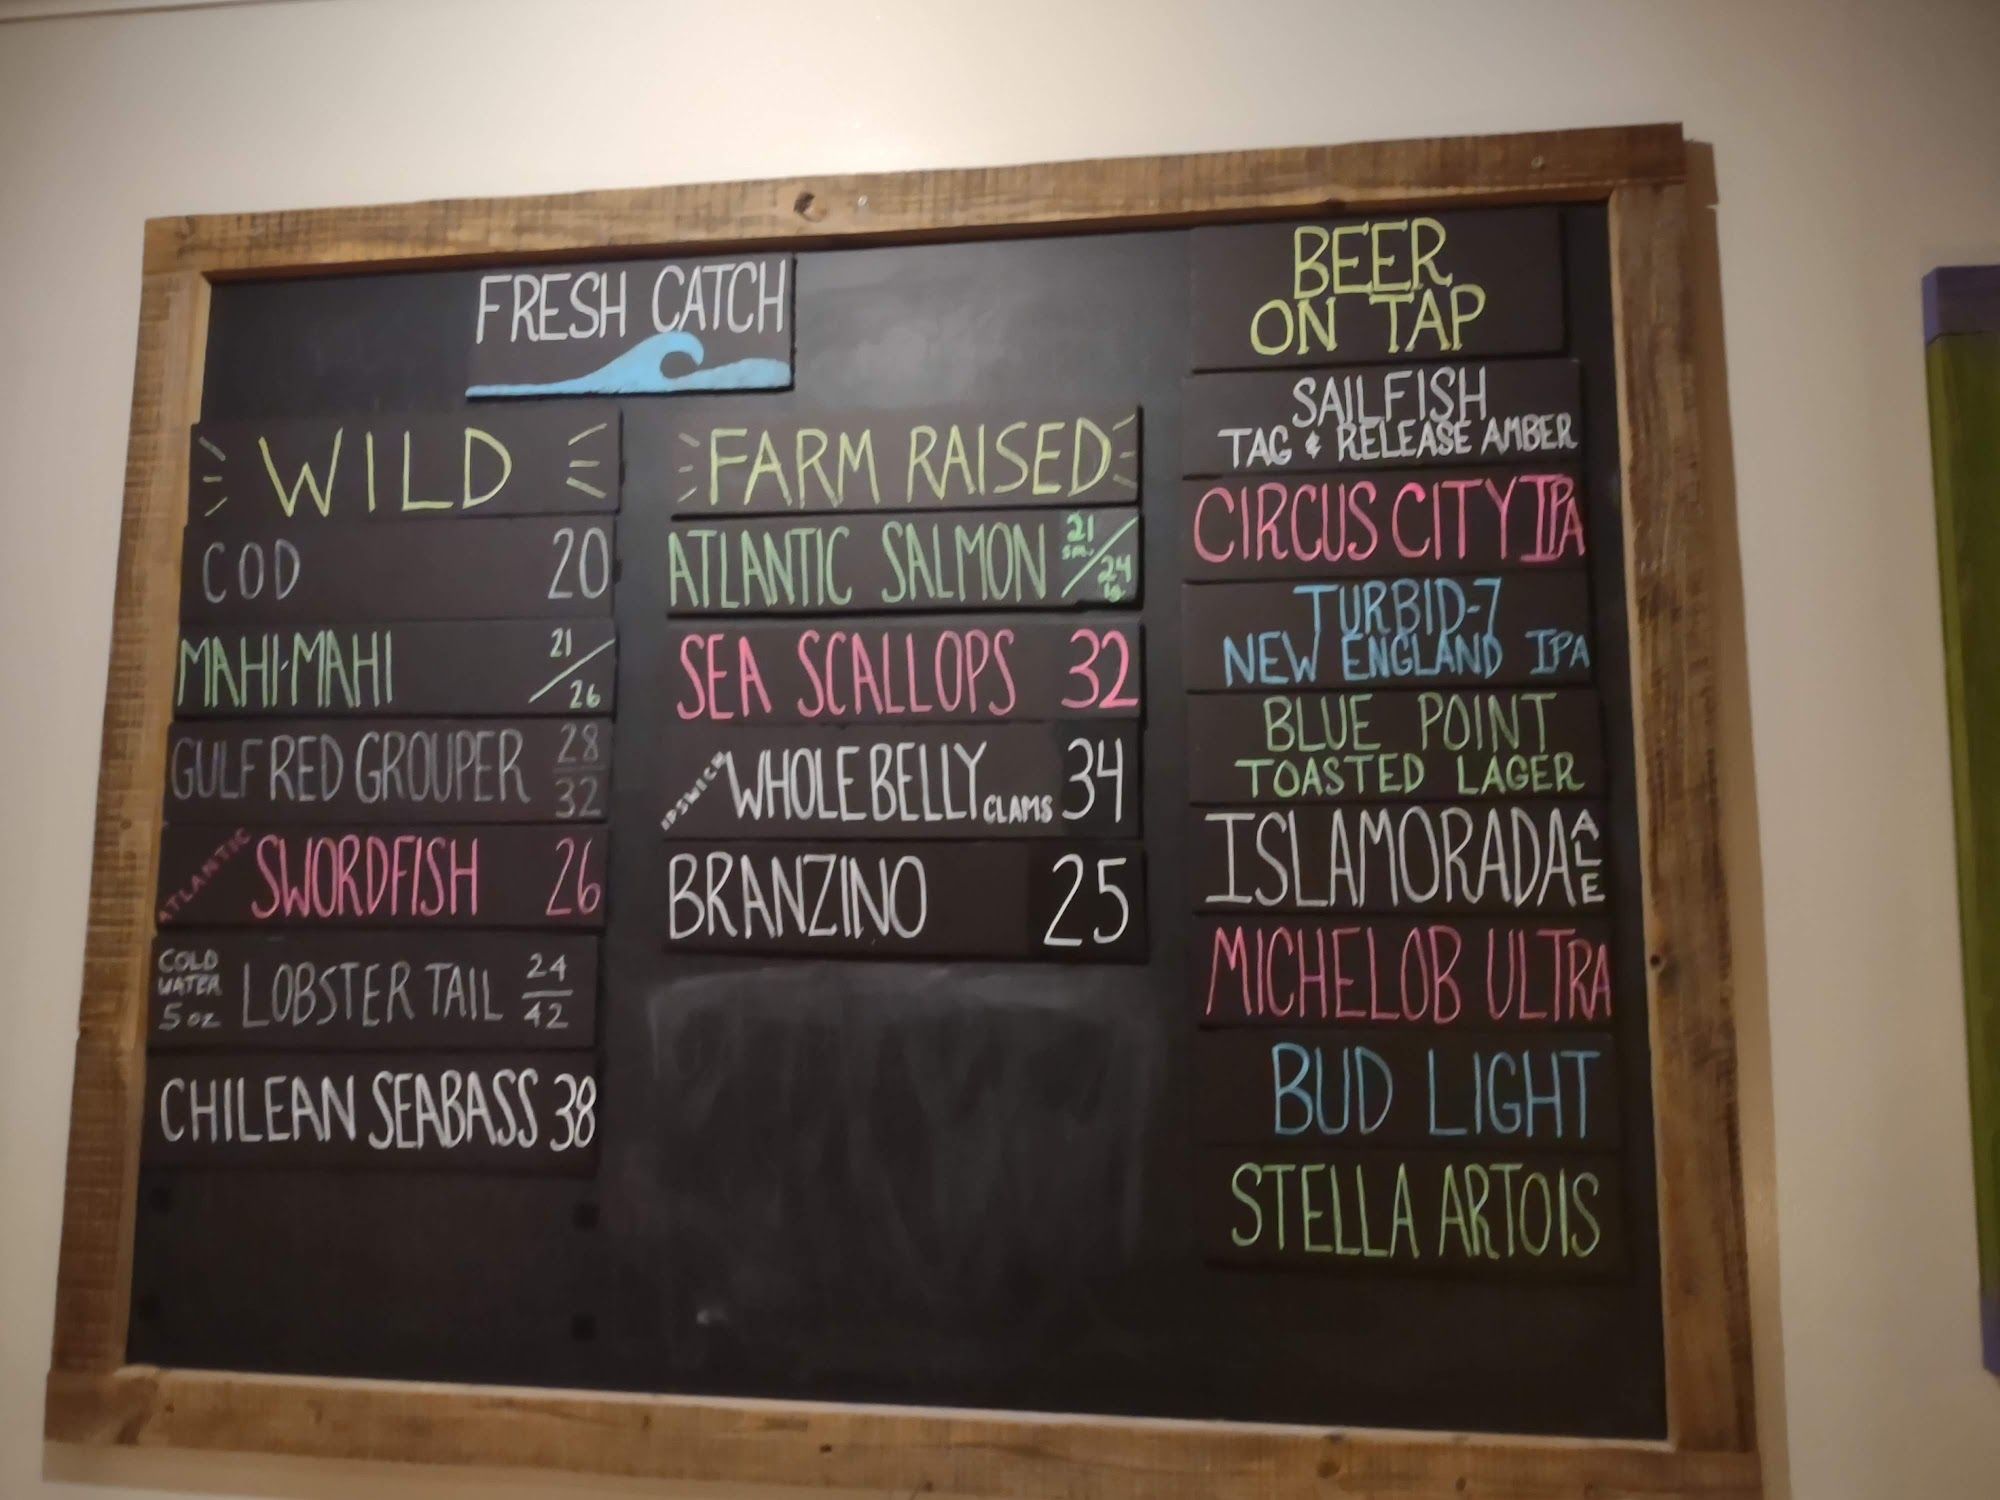 FRESH CATCH
WILD
COD 20
MAHI-MAHI 21/26
GULF RED GROUPER 28
32
ATLANTIC SWORDFISH 26
COLD
WATER
5 oz LOBSTER TAIL 24
42
CHILEAN SEABASS 38
FARM RAISED
ATLANTIC SALMON 21 sm. / 24 lg
SEA SCALLOPS 32
IPSWICH WHOLE BELLY CLAMS 34
BRANZINO 25
BEER
ON TAP
SAILFISH
TAG & RELEASE AMBER
CIRCUS CITY IPA
TURBID-7
NEW ENGLAND IPA
BLUE POINT
TOASTED LAGER
ISLAMORADA ALE
MICHELOB ULTRA
BUD LIGHT
STELLA ARTOIS